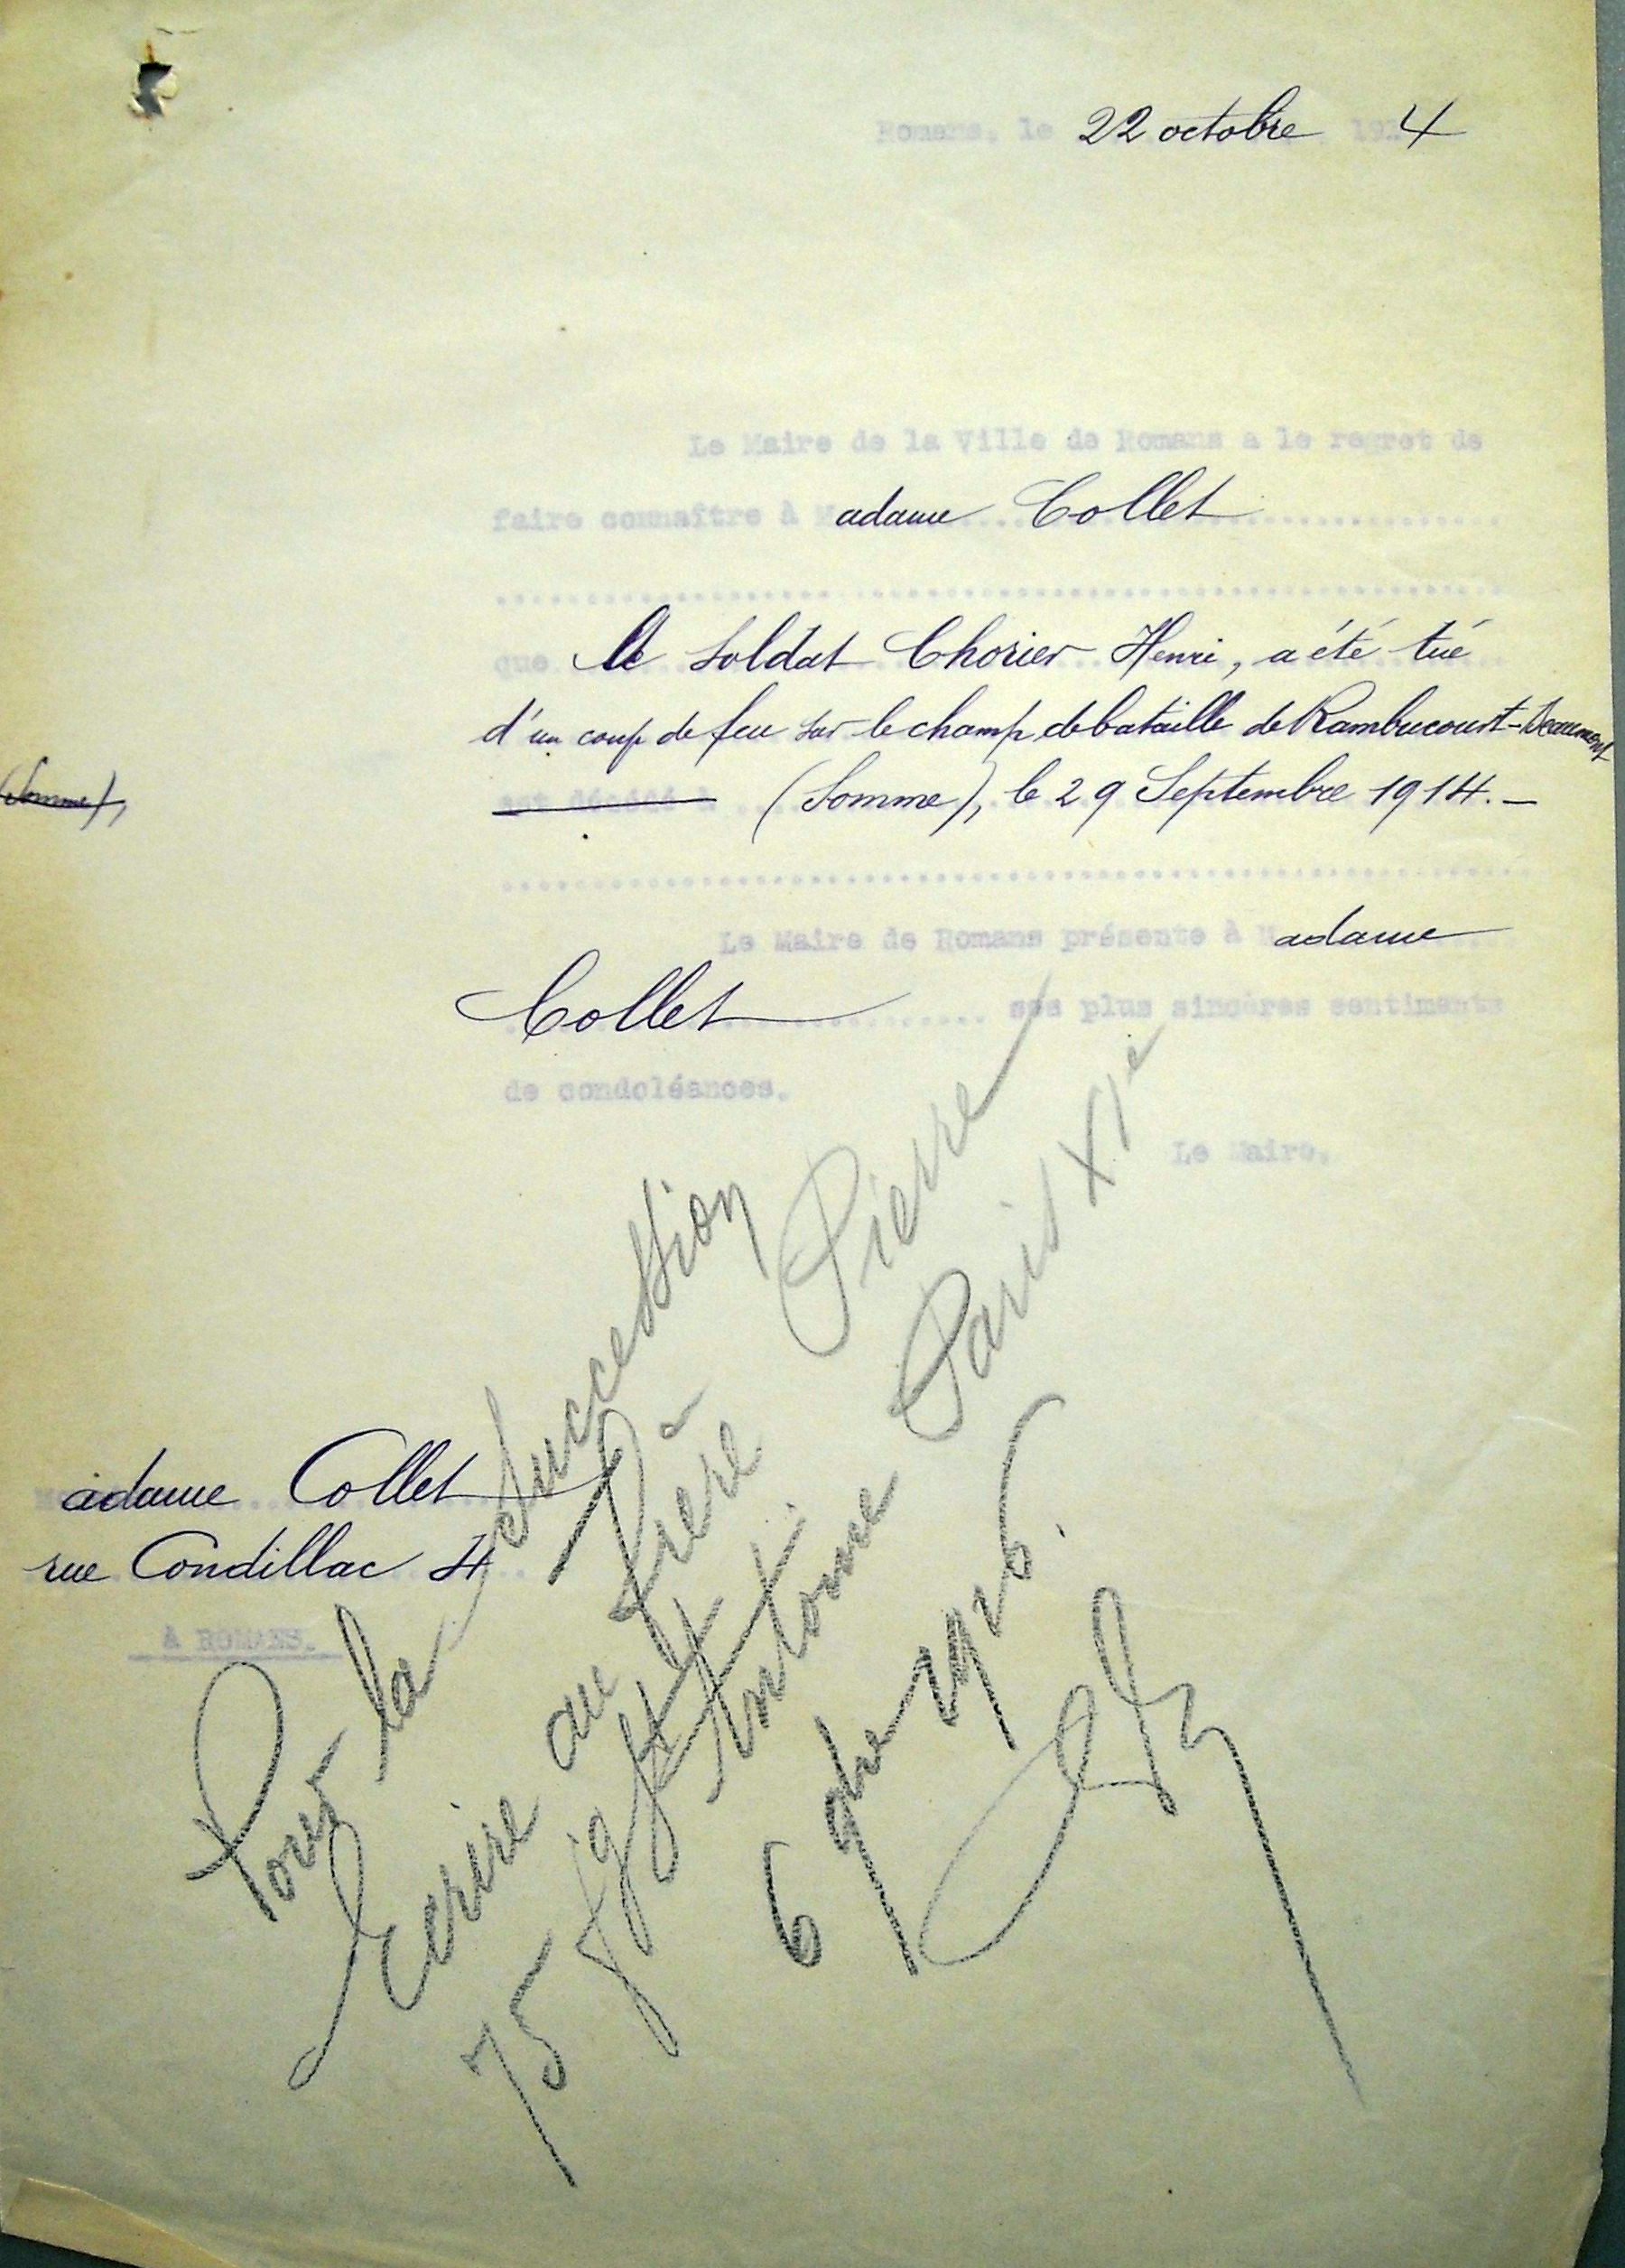 Romans, le 22 octobre 1914
Le Maire de la Ville de Romans a le regret de
faire connaître à Madame Collet
que le soldat Chorier Henri, a été tué
d'un coup de feu sur le champ de bataille de Rambucourt-Beaumont
(Somme),
est décédé à (Somme), le 29 Septembre 1914.-
Le Maire de Romans présente à Madame
Collet ses plus sincères sentiments
de condoléances.
Le Maire.
Madame Collet
rue Condillac 4
À ROMANS.
Pour la succession
Ecrire au frère Pierre
75 fg St Antoine Paris XIe
6